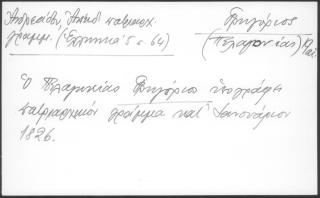 Ἀνδρεάδη, Ἀνέκδ. πατριαρχ.
γράμμ. (Ἑλληνικὰ 5 σ. 64)
Γρηγόριος
(Πελαγονίας)
Ὁ Πελαγονίας Γρηγόριος ὑπογράφει
πατριαρχικὸν γράμμα κατ' Ἰανουάριον
1826.